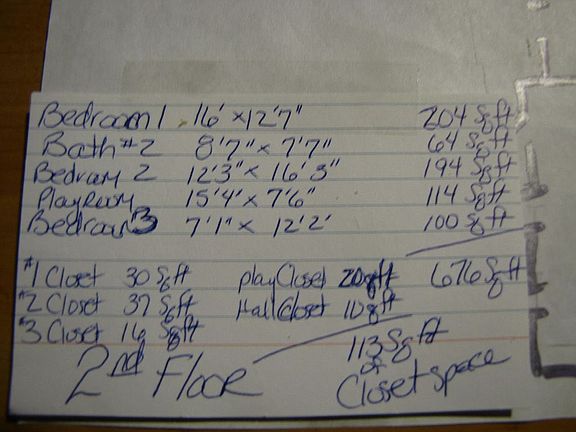 Bedroom 1 16' x 12'7" 204 Sqft
Bath #2 8'7" x 7'7" 64 Sqft
Bedroom 2 12'3" x 16'3" 194 Sqft
Playroom 15'4' x 7'6" 114 Sqft
Bedroom 3 7'1" x 12'2' 100 Sqft
#1 Closet 30 Sqft play Closet 20 sqft 676 Sqft
#2 Closet 37 Sqft Hall Closet 10 sqft
#3 Closet 16 Sqft
113 Sqft
of
2nd Floor Closet space